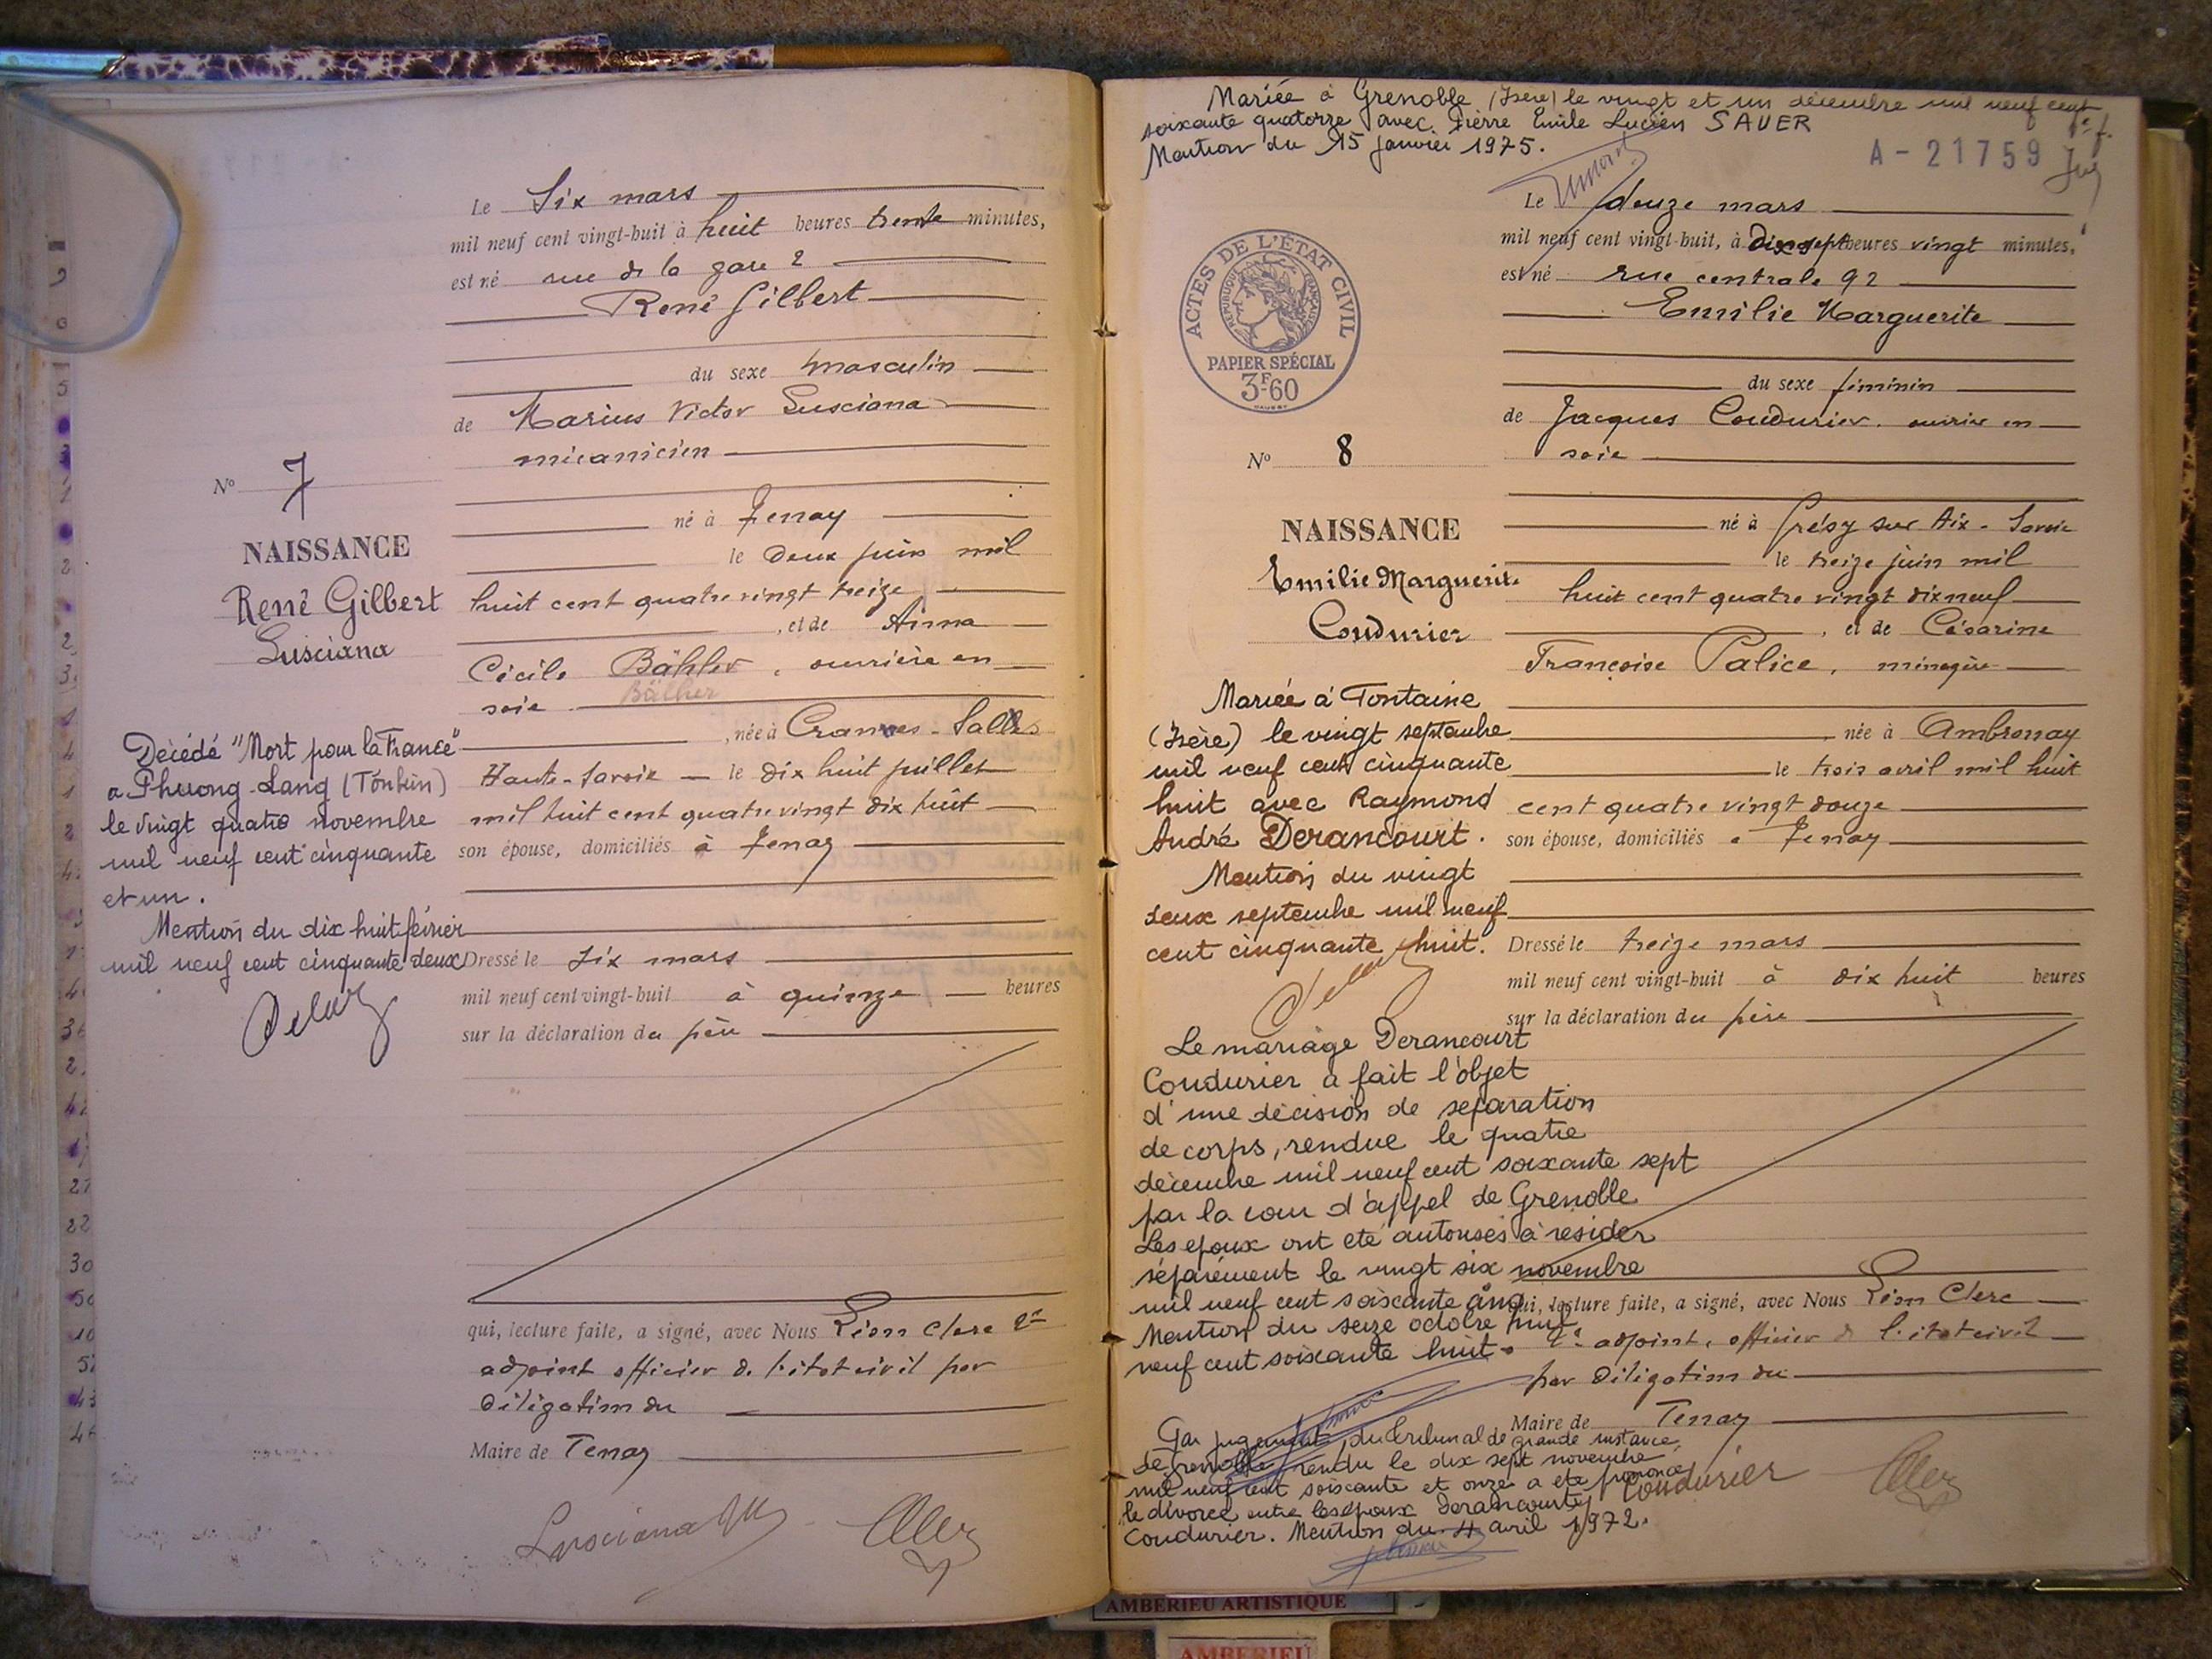 Le Six mars
mil neuf cent vingt-huit à huit heures trente minutes,
est né rue de la gare 2
René Gilbert
du sexe masculin
de Marius Victor Lusciana
mécanicien
né à Tenay
le deux juin mil
huit cent quatre vingt treize
, et de Anna
Cécile Bähler, ouvrière en
Bälher
soie
, née à Cranves-Salles
Haute-Savoie — le dix huit juillet
mil huit cent quatre vingt dix huit
son épouse, domiciliés à Tenay
Dressé le six mars
mil neuf cent vingt-huit à quinze heures
sur la déclaration du père
qui, lecture faite, a signé, avec Nous Léon Clerc 2e
adjoint officier de l'état civil par
délégation du
Maire de Tenay
Lusciana
No 7
NAISSANCE
René Gilbert
Lusciana
Décédé "Mort pour la France"
a Phuong-Lang (Tonkin)
le vingt quatre novembre
mil neuf cent cinquante
et un.
Mention du dix huit février
mil neuf cent cinquante deux
Mariée à Grenoble (Isère) le vingt et un décembre mil neuf cent
soixante quatorze avec Pierre Emile Lucien SAUER
Mention du 15 janvier 1975.
A-21759
Le douze mars
mil neuf cent vingt-huit, à dix sept heures vingt minutes,
est né rue centrale 92
Emilie Marguerite
du sexe féminin
de Jacques Coudurier, ouvrier en
soie
né à Grésy sur Aix - Savoie
le treize juin mil
huit cent quatre vingt dix neuf
, et de Césarine
Françoise Palice, ménagère
née à Ambronay
le trois avril mil huit
cent quatre vingt douze
son épouse, domiciliés à Tenay
Dressé le treize mars
mil neuf cent vingt-huit à dix huit heures
sur la déclaration du père
qui, lecture faite, a signé, avec Nous Léon Clerc
2e adjoint, officier de l'état civil
par délégation du
Maire de Tenay
Coudurier
ACTES DE L'ÉTAT CIVIL
RÉPUBLIQUE FRANÇAISE
PAPIER SPÉCIAL
3F-60
No 8
NAISSANCE
Emilie Marguerite
Coudurier
Mariée à Fontaine
(Isère) le vingt septembre
mil neuf cent cinquante
huit avec Raymond
André Derancourt.
Mention du vingt
deux septembre mil neuf
cent cinquante huit.
Le mariage Derancourt
Coudurier a fait l'objet
d'une décision de séparation
de corps, rendue le quatre
décembre mil neuf cent soixante sept
par la cour d'appel de Grenoble
Les époux ont été autorisés à résider
séparément le vingt six novembre
mil neuf cent soixante cinq
Mention du seize octobre mil
neuf cent soixante huit.
Par jugement du tribunal de grande instance
de Grenoble rendu le dix sept novembre
mil neuf cent soixante et onze a été prononcé
le divorce entre les époux Derancourt
Coudurier. Mention du 4 avril 1972.
AMBERIEU ARTISTIQUE
AMBERIEU